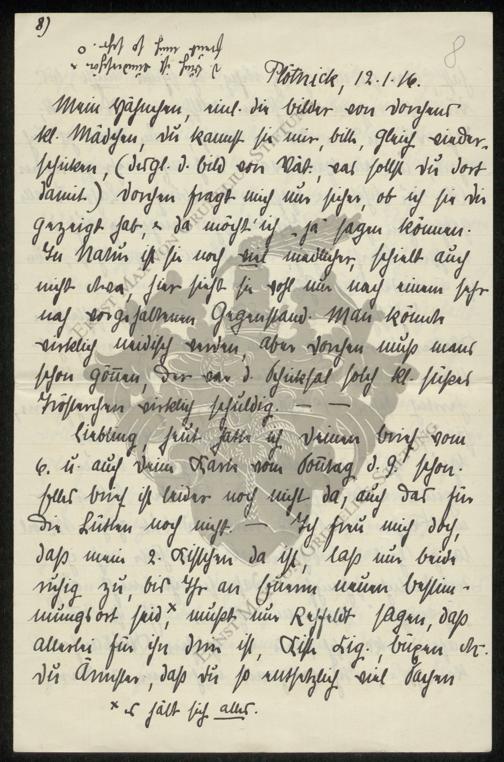 8)
8
Plötnick, 12.1.16.
Mein Hähnchen, einl. die bilder von Dorchens
kl. Mädchen, du kannst sie mir, bitte, gleich wieder-
schicken, (desgl. d. bild von Vat, was sollst du dort
damit.) Dorchen fragt mich nun sicher, ob ich sie dir
gezeigt hab, u. da möcht ich "ja" sagen können.
In Natur ist sie noch viel niedlicher, schielt auch
nicht etwa, hier sieht sie wohl nur nach einem sehr
nah vorgehaltenen Gegenstand. Man könnte
wirklich neidisch werden, aber Dorchen muß mans
schon gönnen, der war d. Schicksal solch kl. süßes
Trösterchen wirklich schuldig. — —
Liebling, heut hatte ich deinen brief vom
6. u. auch deine Karte vom Sonntag d. 9. schon.
brief ist leider noch nicht da, auch das für
die Lütten noch nicht. — Ich freu mich doch,
daß mein 2. Kisschen da ist, laß nur beide
ruhig zu, bis Ihr an Euerm neuen bestim-
mungsort seid,x müßt nur sagen, daß
allerlei für ihn drin ist, Kiste Zig., etc.
du Ärmster, daß du so entsetzlich viel Sachen
x es hält sich alles.
ERNST MAX VON GRUNELIUS-STIFTUNG
ERNST MAX VON GRUNELIUS-STIFTUNG